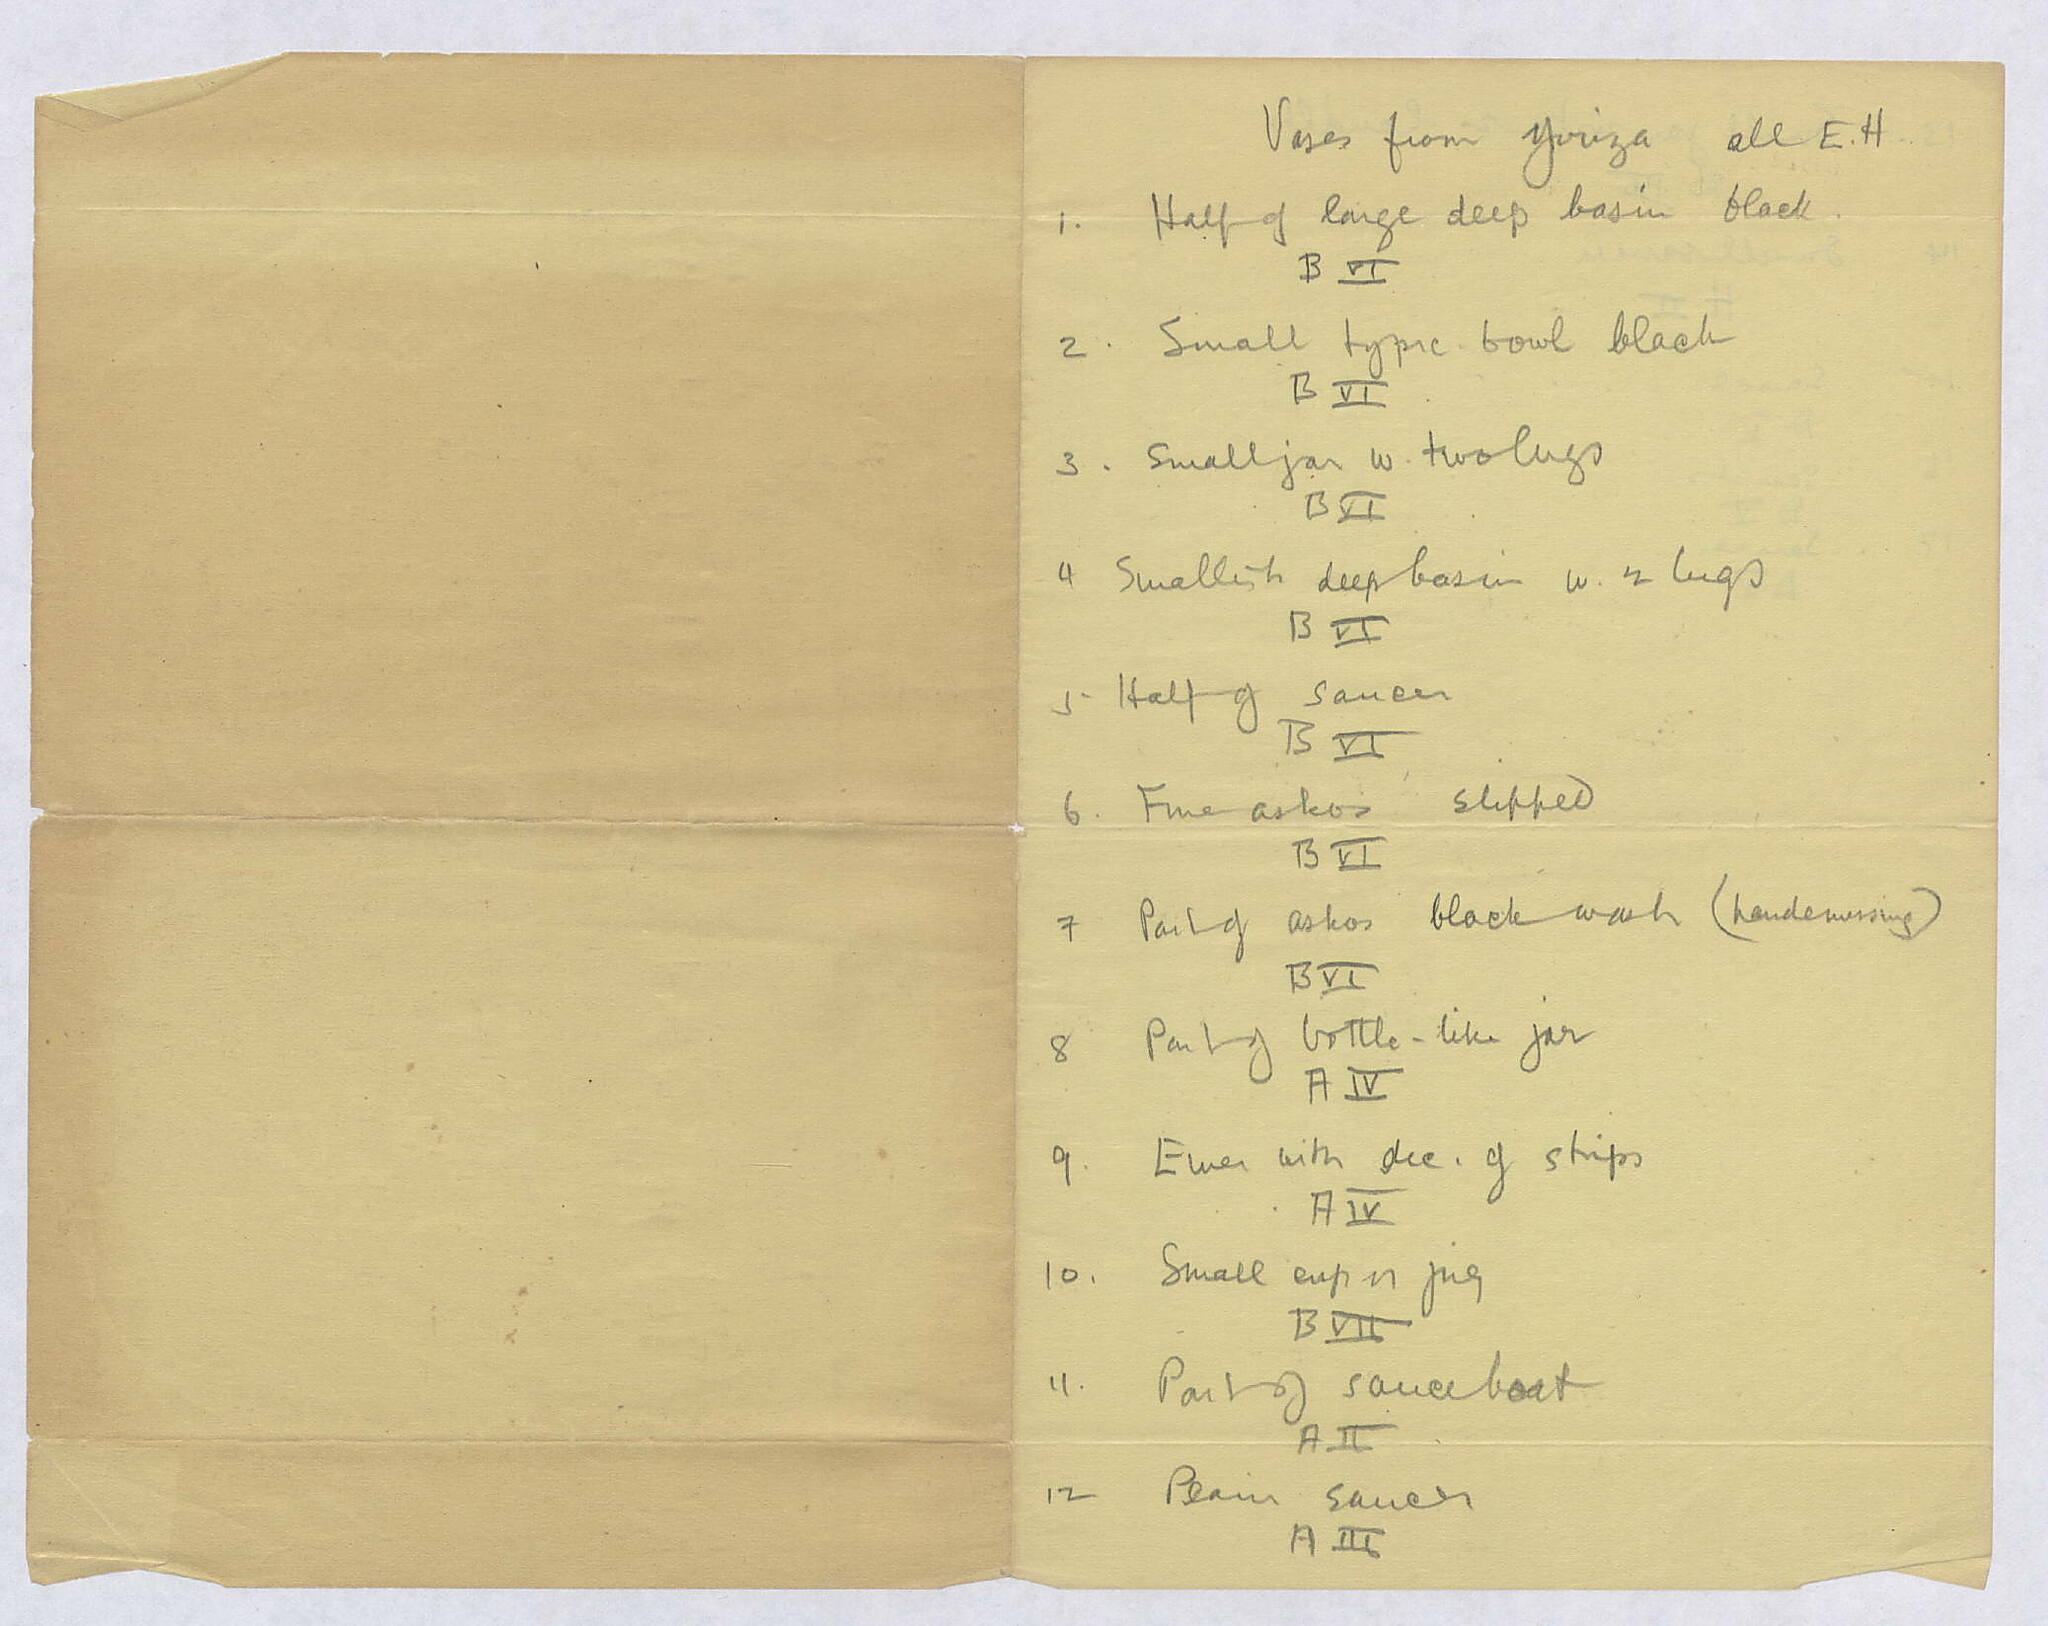 Vases from Yiriza all E.H.
1. Half of large deep basin black.
B VI
2. Small typic. bowl black
B VI
3. Small jar w. two lugs
B VI
4 Smallish deep basin w. 2 lugs
B VI
5 Half of saucer
B VI
6. Fine askos slipped
B VI
7 Part of askos black wash (handle missing)
B VI
8 Part of bottle-like jar
A IV
9. Ewer with dec. of strips
A IV
10. Small cup or jug
B VII
11. Part of sauceboat
A II
12 Plain saucer
A III